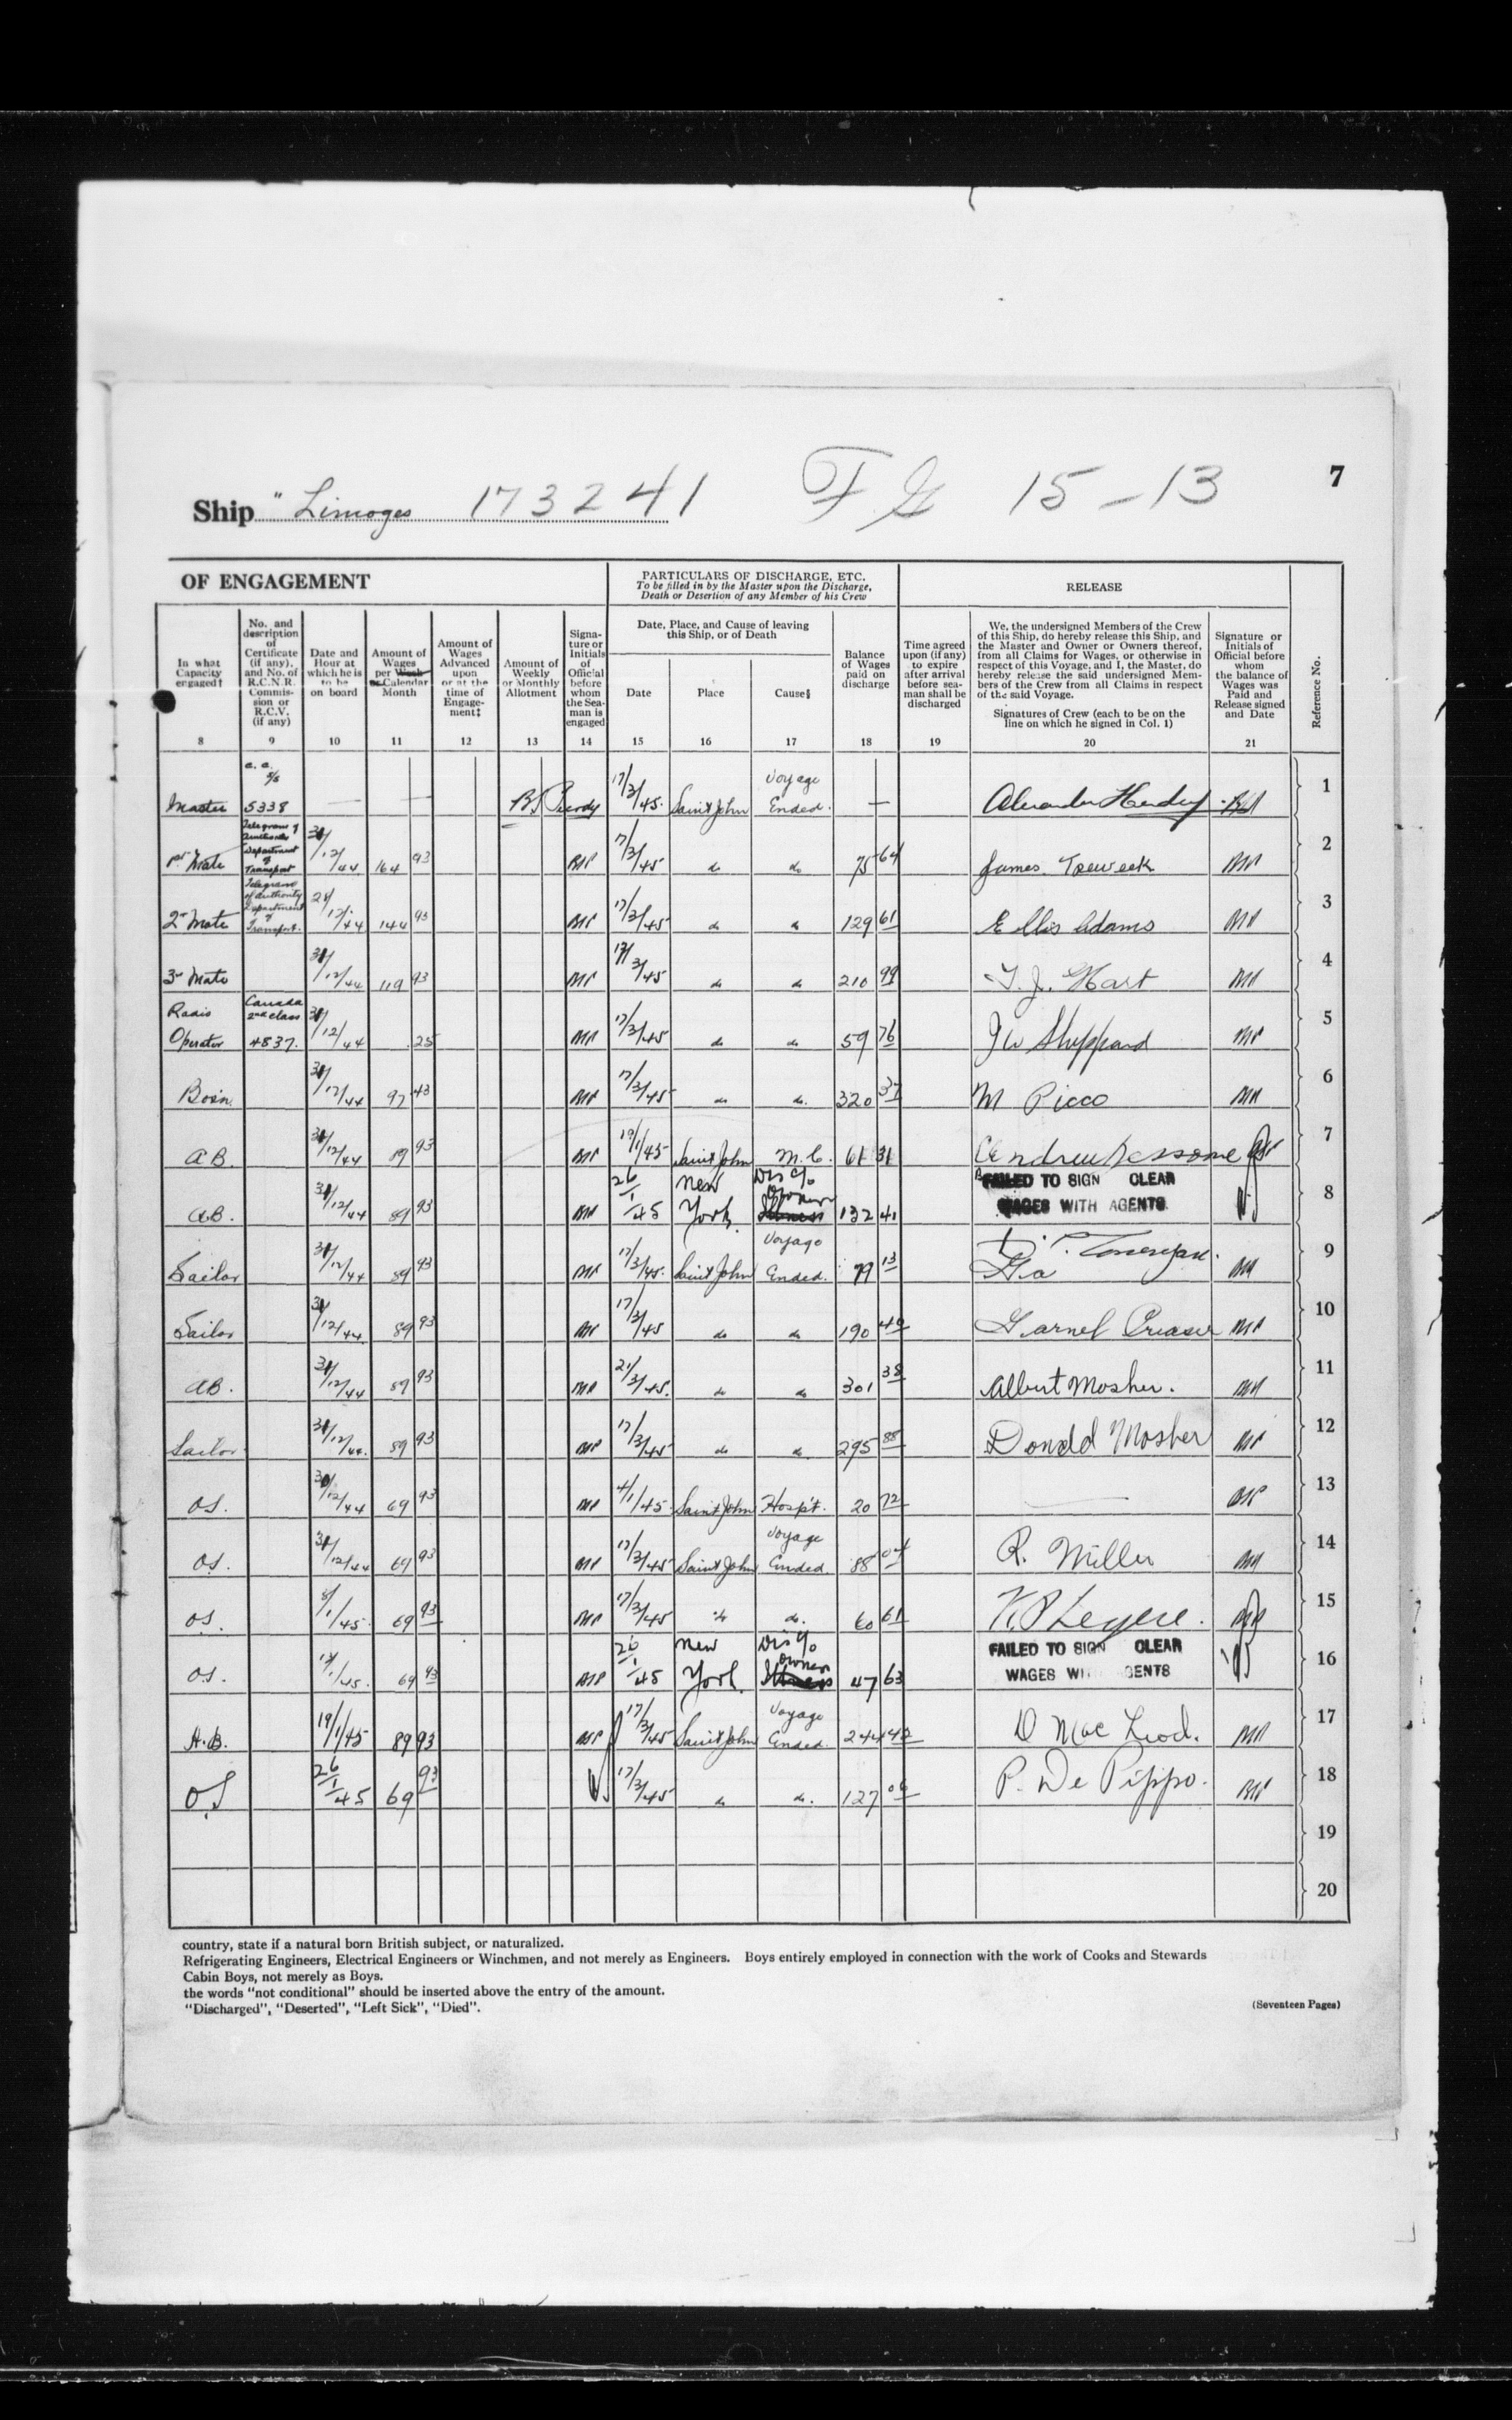 7
Ship "Limoges 173241 F G 15-13
OF ENGAGEMENT
PARTICULARS OF DISCHARGE, ETC.
To be filled in by the Master upon the Discharge,
Death or Desertion of any Member of his Crew
RELEASE
In what
Capacity
engaged†
8
No. and
description
of
Certificate
(if any),
and No. of
R.C.N.R.
Commis-
sion or
R.C.V.
(if any)
9
Date and
Hour at
which he is
to be
on board
10
Amount of
Wages
per Week
or Calendar
Month
11
Amount of
Wages
Advanced
upon
or at the
time of
Engage-
ment‡
12
Amount of
Weekly
or Monthly
Allotment
13
Signa-
ture or
Initials
of
Official
before
whom
the Sea-
man is
engaged
14
Date, Place, and Cause of leaving
this Ship, or of Death
Date
15
Place
16
Cause§
17
Balance
of Wages
paid on
discharge
18
Time agreed
upon (if any)
to expire
after arrival
before sea-
man shall be
discharged
19
We, the undersigned Members of the Crew
of this Ship, do hereby release this Ship, and
the Master and Owner or Owners thereof,
from all Claims for Wages, or otherwise in
respect of this Voyage, and I, the Master, do
hereby release the said undersigned Mem-
bers of the Crew from all Claims in respect
of the said Voyage.
Signatures of Crew (each to be on the
line on which he signed in Col. 1)
20
Signature or
Initials of
Official before
whom
the balance of
Wages was
Paid and
Release signed
and Date
21
Reference No.
Master 5338 17/3/45. Saint John Voyage Ended. — 1
1st Mate Telegram of Authority Department of Transport 31/12/44 164 93 17/3/45 do do 75 64 James Treweek 2
2nd Mate Telegram of Authority Department of Transport. 28/12/44 144 93 17/3/45 do do 129 61 Ellis Adams 3
3rd Mate 31/12/44 119 93 17/3/45 do do 210 99 T. J. Hart 4
Radio Operator Canada 2nd class 4837. 31/12/44 .25 17/3/45 do do 59 76 J W Sheppard 5
Bosn. 31/12/44 97 43 17/3/45 do do. 320 37 M Picco 6
AB. 31/12/44 89 93 19/1/45 Saint John M.C. 61 31 7
AB. 31/12/44 89 93 26/1/45 New York. Disc/o Owner Illness 132 41 FAILED TO SIGN CLEAR WAGES WITH AGENTS. 8
Sailor 31/12/44 89 93 17/3/45. Saint John Voyage Ended. 79 13 9
Sailor 31/12/44 89 93 17/3/45 do do 190 40 10
AB. 31/12/44 89 93 21/3/45. do do 301 38 Albert Mosher. 11
Sailor 31/12/44. 89 93 17/3/45 do do 295 88 Donald Mosher 12
OS. 30/12/44 69 93 4/1/45. Saint John Hosp't. 20 72 — 13
OS. 31/12/44 69 93 17/3/45 Saint John Voyage Ended. 88 04 R. Miller 14
OS. 8/1/45. 69 93 17/3/45 do do. 60 61 15
OS. /1/45. 69 93 26/1/45 New York. Disc/o Owner Illness 47 63 FAILED TO SIGN CLEAR WAGES WI GENTS 16
A.B. 19/1/45 89 93 17/3/45 Saint John Voyage Ended. 244 42 D MacLeod. 17
OS 26/1/45 69 93 17/3/45 do do. 127 06 P. De Pippo. 18
19
20
country, state if a natural born British subject, or naturalized.
Refrigerating Engineers, Electrical Engineers or Winchmen, and not merely as Engineers. Boys entirely employed in connection with the work of Cooks and Stewards
Cabin Boys, not merely as Boys.
the words "not conditional" should be inserted above the entry of the amount.
"Discharged", "Deserted", "Left Sick", "Died".
(Seventeen Pages)